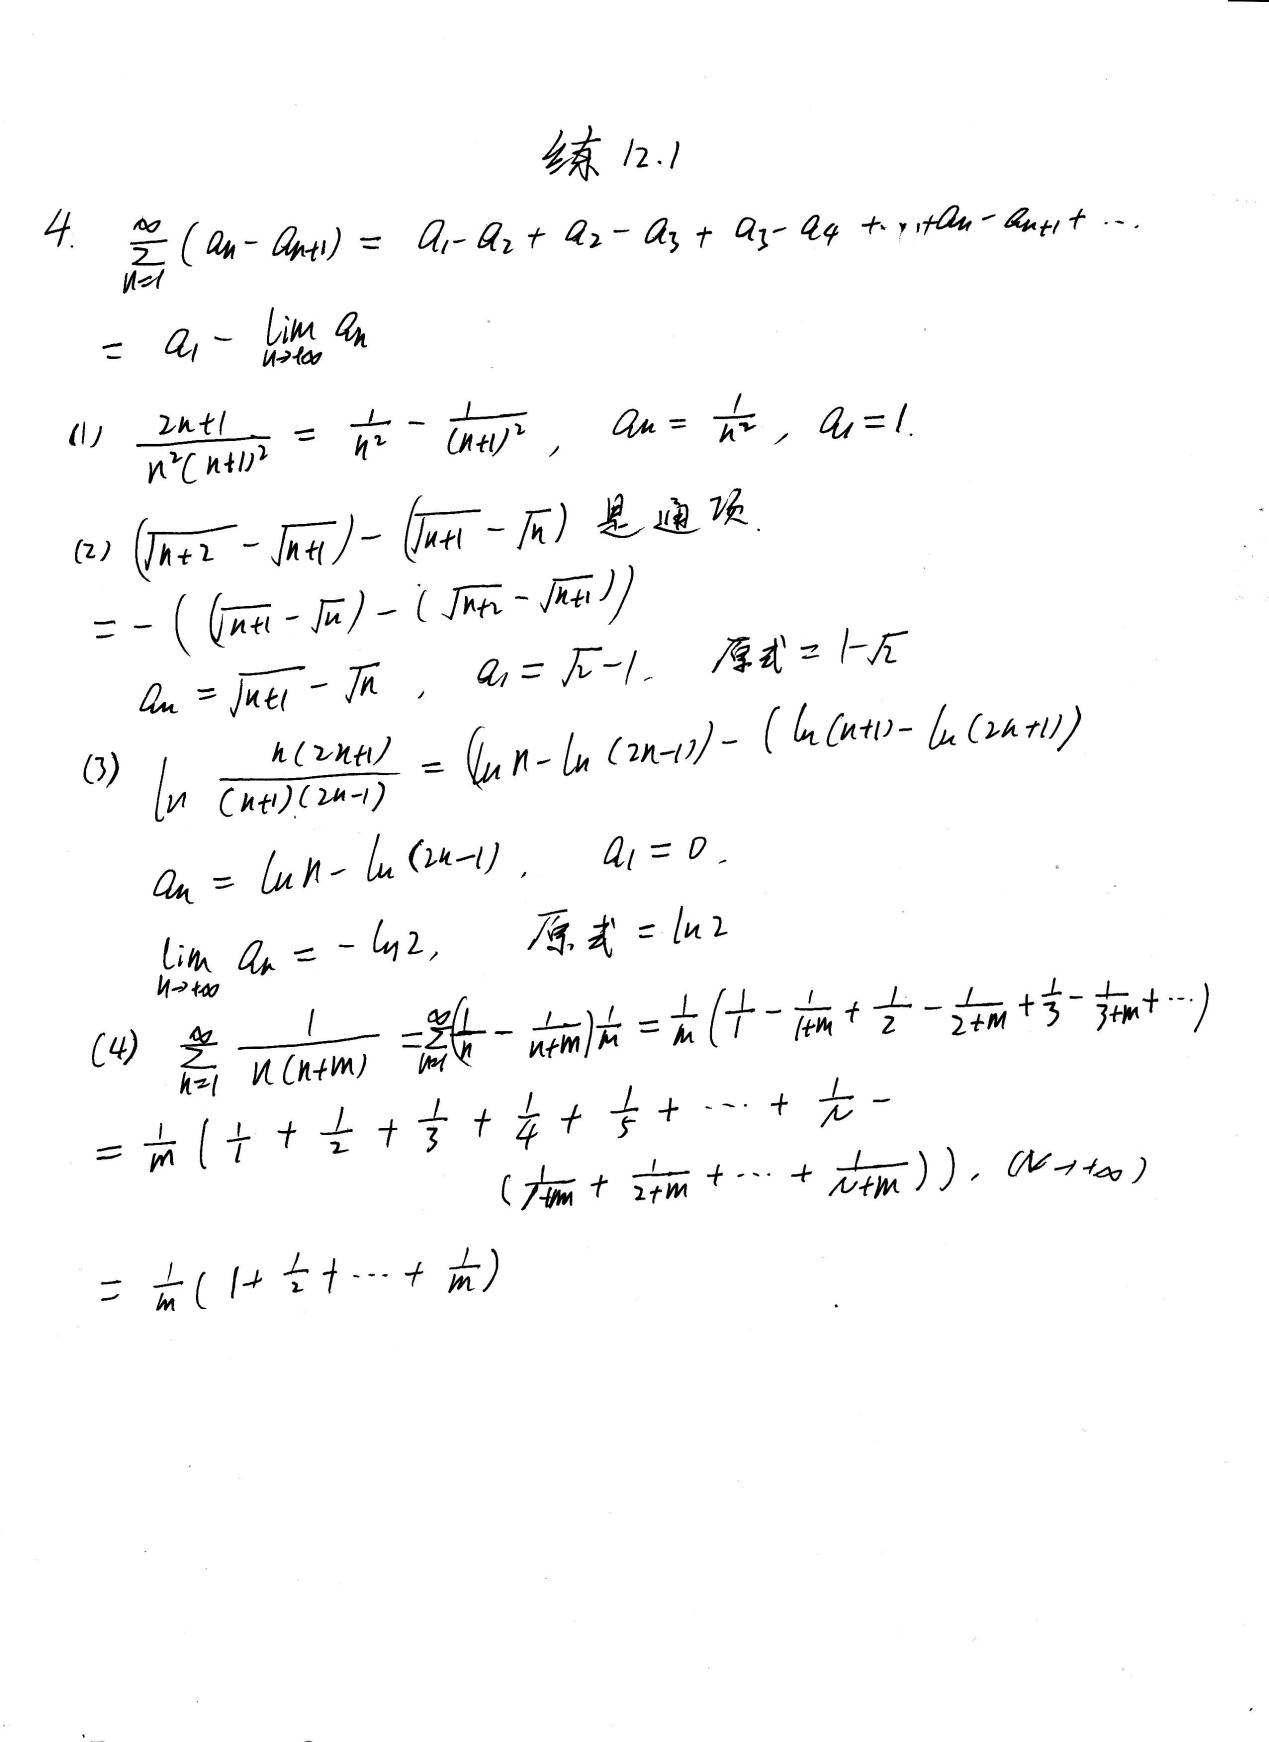 练 12.1
4. ∑_{n=1}^{∞} (a_n - a_{n+1}) = a_1 - a_2 + a_2 - a_3 + a_3 - a_4 + ... + a_n - a_{n+1} + ...
= a_1 - lim_{n→+∞} a_n
(1) (2n+1)/(n²(n+1)²) = 1/n² - 1/(n+1)², a_n = 1/n², a_1 = 1.
(2) (√(n+2) - √(n+1)) - (√(n+1) - √n) 是通项.
= -((√(n+1) - √n) - (√(n+2) - √(n+1)))
a_n = √(n+1) - √n, a_1 = √2 - 1. 原式 = 1-√2
(3) ln (n(2n+1))/((n+1)(2n-1)) = (ln n - ln(2n-1)) - (ln(n+1) - ln(2n+1))
a_n = ln n - ln(2n-1), a_1 = 0.
lim_{n→+∞} a_n = -ln2, 原式 = ln2
(4) ∑_{n=1}^{∞} 1/(n(n+m)) = ∑_{n=1}^{∞} (1/n - 1/(n+m)) 1/m = 1/m (1/1 - 1/(1+m) + 1/2 - 1/(2+m) + 1/3 - 1/(3+m) + ...)
= 1/m (1/1 + 1/2 + 1/3 + 1/4 + 1/5 + ... + 1/N -
(1/(1+m) + 1/(2+m) + ... + 1/(N+m))), (N→+∞)
= 1/m (1 + 1/2 + ... + 1/m)